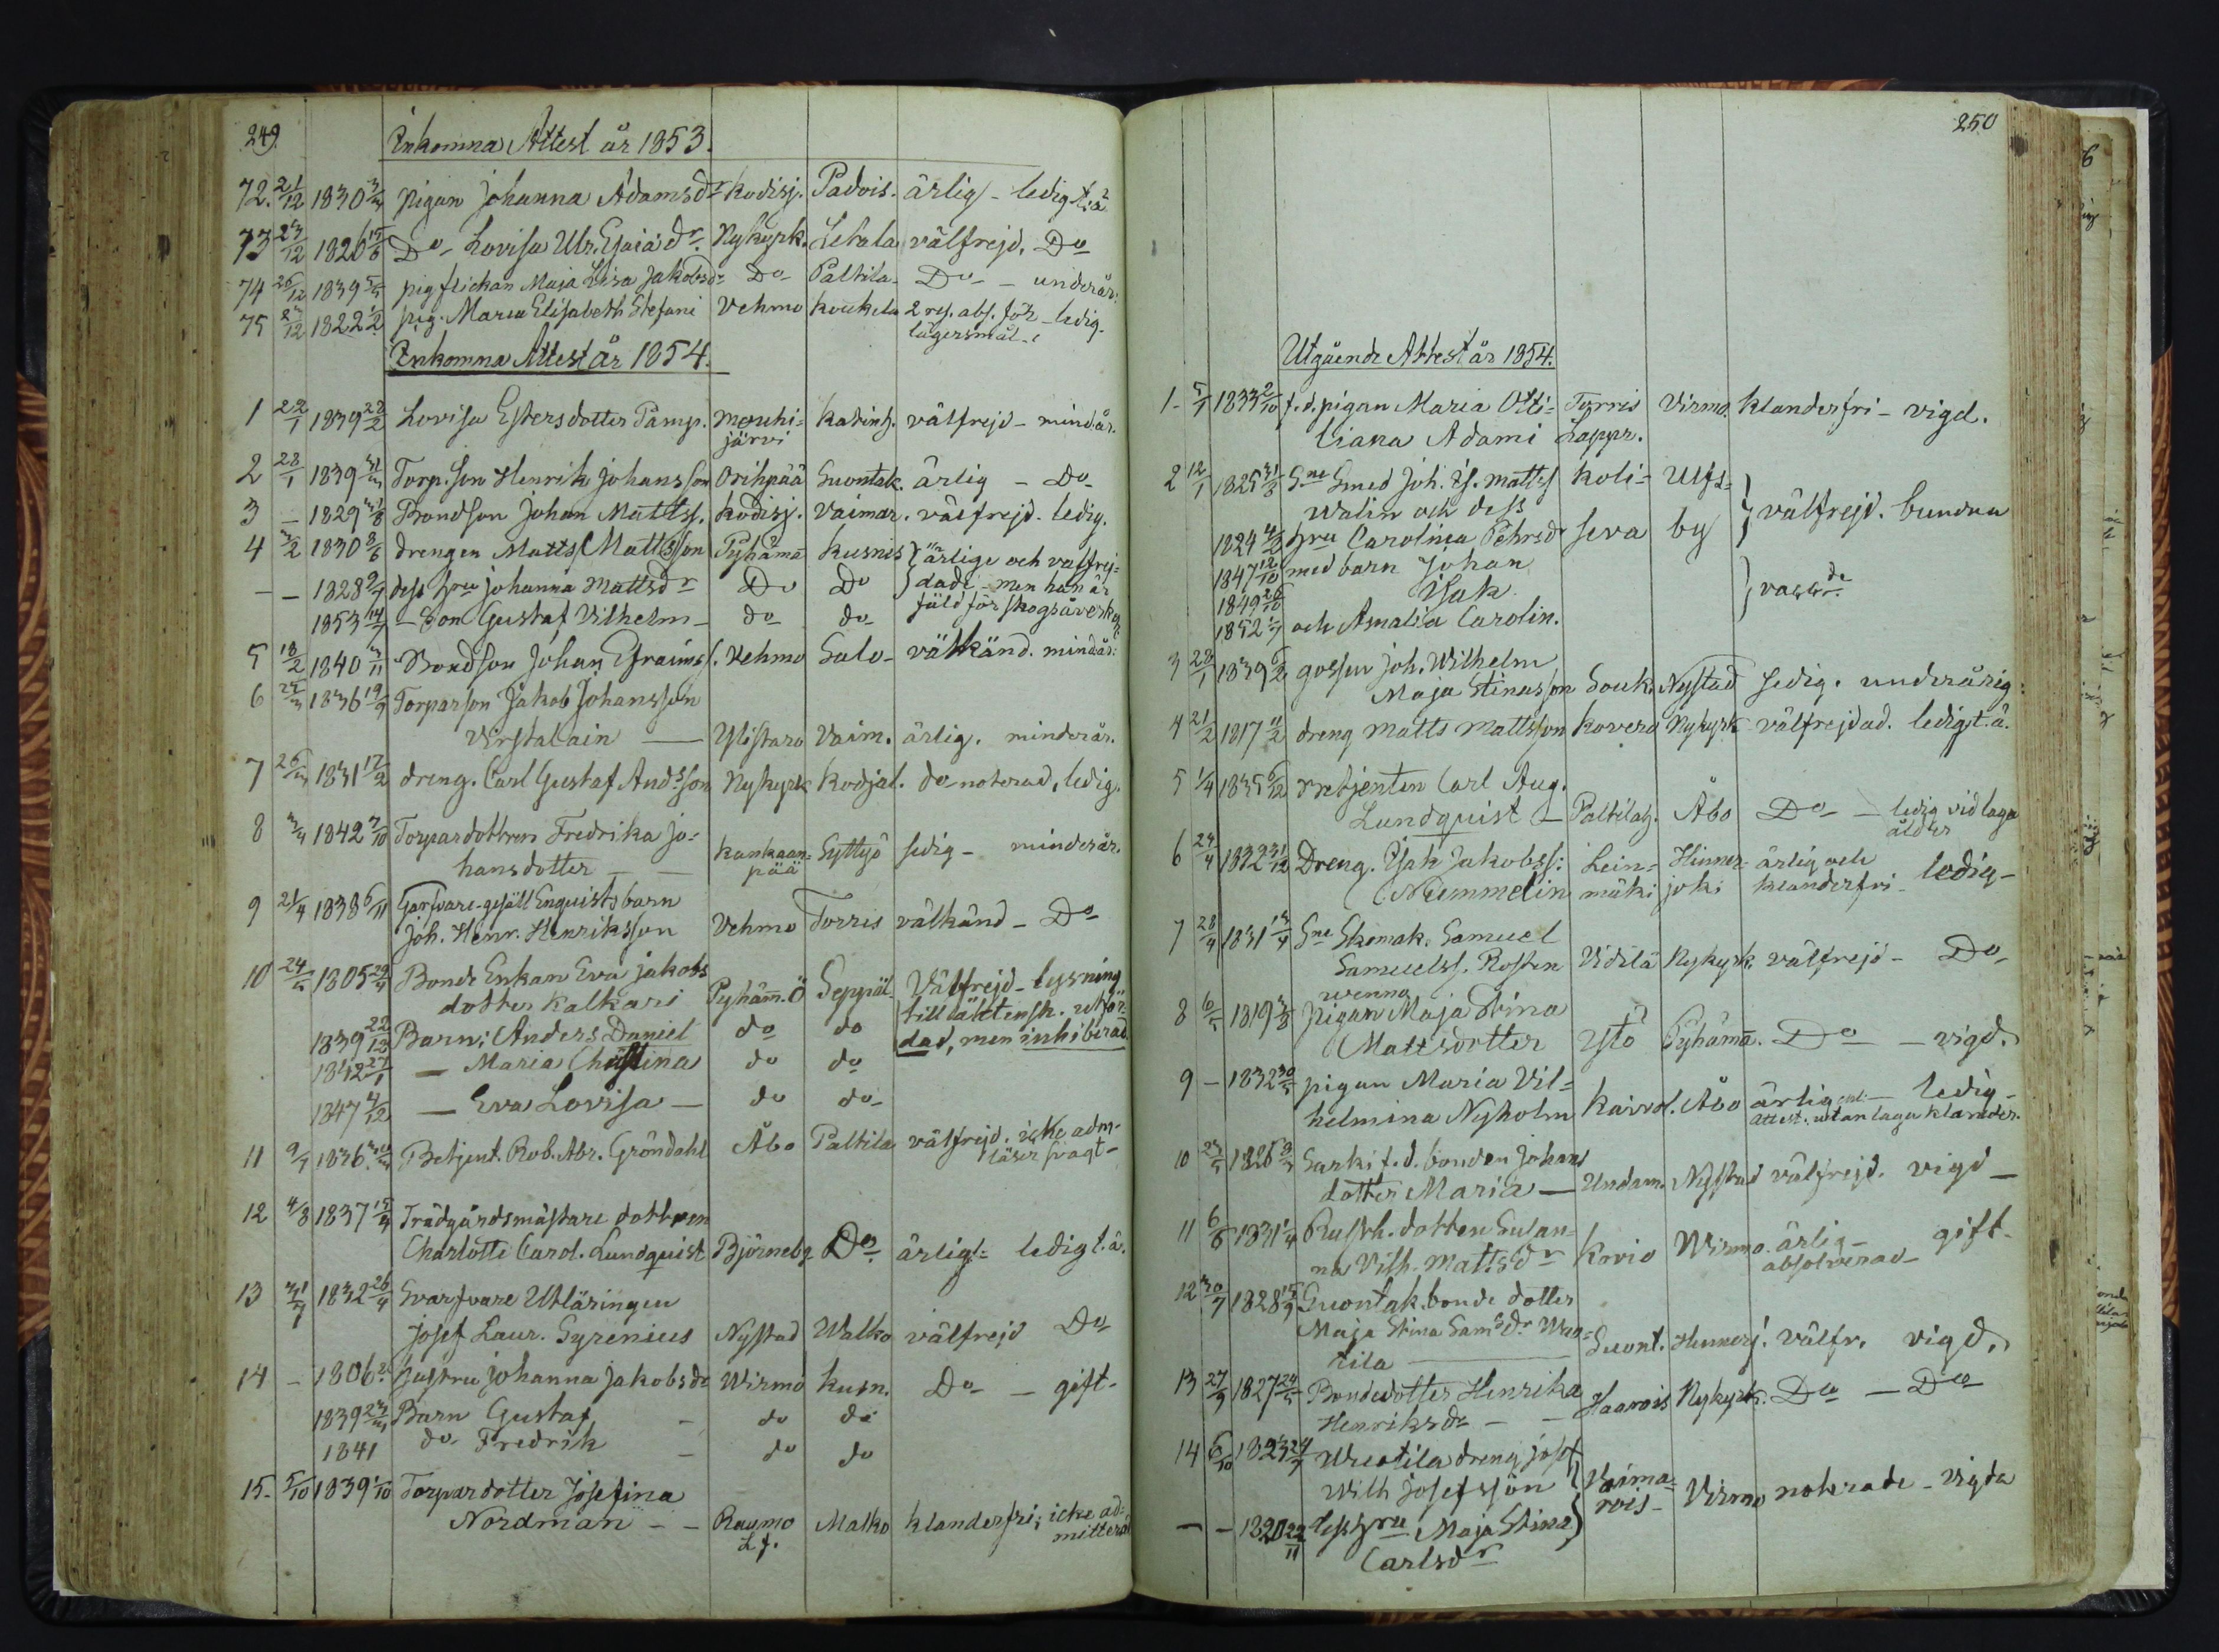 249.
Inkomna Attest år 1853.
72. 21/12 1830 pigan Johanna Adamsdr Kodisj. Padois. ärlig - ledig t.ä
73 23/12 1826 15/6 Do Lovisa Ulr. Esaiædr. Nykyrk. Letala välfrejd. Do
74 26/12 1839 pigflickan Maja Lisa Jakobsdr Do Paltila Do - underår.
75 /12 1822 pig. Maria Elisabeth Stefani Vehmo Koukela 2 res. abs. för - ledig.
lägersmål.
Inkomna Attest år 1854.
1 22/1 1839 22/2 Lovisa Estersdotter Pamp. Mouhi= Katinh. välfrejd - mind.år.
järvi
2 28/1 1839 Torp.son Henrik Johansson Orihpää Suontak. ärlig - Do
3 - 1829 Bondson Johan Mattss. Kodisj. Vaimar. välfrejd. ledig.
4 3/2 1830 8/6 drengen Matts Mattsson Pyhämä Kusnis ärlige och valfrej=
- - 1828 9/7 dess hru Johanna Mattsdr Do Do dade - men han är
1853 14/7 - Son Gustaf Vilhelm - do do fäld för skogsåverkan
5 18/2 1840 3/11 Bondson Johan Efraimss. Vehmo Salo - välkänd. mind.år.
6 25/3 1836 19/9 Torparson Jakob Johansson
Virstalain — Ylistaro Vaim. ärlig. minderår.
7 26/3 1831 17/2 dreng. Carl Gustaf Andsson Nykyrk Kodjal. do noterad, ledig.
8 3/4 1842 7/10 Torpardottren Fredrika Jo=
hansdotter - - Kankaan= Syttyö sedig - minderår.
pää
9 21/4 1838 6/11 Garfvare-gesäll Enquists barn
Joh. Henr. Henriksson Vehmo Torris välkänd - Do
10 24/5 1805 29/4 Bonde Enkan Eva Jakobs
dotter Kalkari Pyhäm. Ö Seppäl. Välfrejd - lysning
1839 22/12 Barn; Anders Daniel do do till äktensk. utfär=
dad, men inhiberad
1842 27/1 — Maria Christina do do
1847 4/12 — Eva Lovisa — do do
11 9/7 1836 30/3 Betjent. Rob. Abr. Gröndahl Åbo Paltila välfrejd. icke adm.
läser svagt -
12 4/8 1837 15/4 Trädgårdsmästare dottren
Charlotte Carol. Lundquist Björnebg Do ärlig - ledig t.ä.
13 31/7 1832 26/4 Svarfvare Utläringen
Josef Laur. Gyrenius Nystad Walko välfrejd Do
14 - 1806 hustru Johanna Jakobsdr Wirmo Kusn. Do - gift -
1839 23/3 Barn Gustaf - do do
1841 do Fredrik - do do
15. 5/10 1839 1/10 Torpardotter Josefina
Nordman - - Raumo Malko klanderfri; icke ad=
L.f. mitterad
250
Utgående Attest år 1854.
1 - 5/1 1833 2/10 f.d. pigan Maria Otti= Tyrris Virmo. klanderfri - vigd.
liana Adami Lappr.
2 12/1 1825 31/3 Sne Smed Joh. Is. Mattss Koli= Ulfs=
Walin och dess
1824 4/2 hru Carolina Pehrsdr seva by välfrejd. bundna
1847 12/10 med barn Johan
1849 26/10 Isak vacc.de
1852 1/7 och Amalia Carolin.
3 28/1 1839 6/2 gossen Joh. Wilhelm
Maja Stinasson Souk. Nystad sedig. underårig
4 21/2 1817 11/2 dreng Matts Mattsson Kovero Nykyrk välfrejdad. ledig t.ä.
5 1/4 1835 6/12 Betjenten Carl Aug.
Lundquist - Paltilah. Åbo Do - ledig vid laga
ålder
6 24/4 1832 31/12 Dreng. Isak Jakobss: Lein= Hinner= ärlig och
(Nummelin mäki joki klanderfri - ledig -
7 28/4 1831 13/4 Sne Skomak. Samuel
Samuelss. Rosten Vidilä Nykyrk. välfrejd - Do
wenno
8 6/5 1819 3/8 pigan Maja Stina
Mattsdotter Ystö Pyhämä. Do - vigd.
9 - 1832 30/5 pigan Maria Vil=
helmina Nyholm Kairol. Åbo ärlig enl. - ledig -
attest. utan laga klander.
10 23/5 1826 Sarki f.d. bonden Johans
dotter Maria — Undam. Nystad välfrejd. vigd -
11 6/6 1831 1/4 Rusth. dotter Susan=
na Vilh. Mattsdr Korio Wirmo. ärlig - gift.
absolverad -
12 30/7 1828 15/9 Suontak. bonde dotter
Maja Stina Samsdr Wan=
tila — Suont. Hinnerj. välfr. vigd.
13 27/9 1827 24/5 Bondedotter Henrika
Henriksdr - - Haarois Nykyrk. Do - Do
14 6/10 1823 24/7 Wustila dreng Josef
Wilh Josefsson Vaima= Virmo noterade - vigda
rois -
- - 1820 22/11 dess hru Maja Stina
Carlsdr